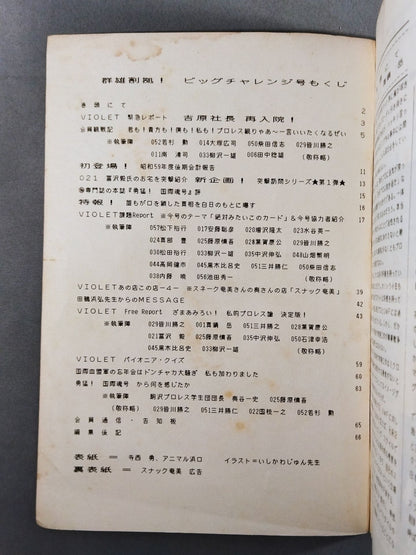 群雄割拠! ビッグチャレンジ号もくじ
巻頭にて 2
VIOLET 緊急レポート 吉原社長 再入院! 3
会員観戦記 君も!貴方も!僕も!私も!プロレス観りゃあ~一言いいたくなるぜい 5
※執筆陣 052若杉 勲 014大塚広司 050柴田信志 029皆川勝之
011南 清司 033柳沢一雄 006田中稔雄 (敬称略)
初登場! 昭和59年度後期会計報告 11
021 冨沢毅氏のお宅を突撃紹介 新企画! 突撃訪問シリーズ★第1弾★
専門誌の本誌『勇猛!国際魂号』評
特報! 誰もがロを鎖した真相を白日のもとに曝す
VIOLET課題Report ※今号のテーマ「絶対みたいこのカード」&今号協力者紹介 17
※執筆陣 057松下裕行 017安藤聡彦 020増沢隆太 023木谷英一
024真部 豊 025藤原慎吾 028葉賀慶公 029皆川勝之
030松田裕行 033柳沢一雄 035中沢伸弘 040山畑繁明
044高岡健市 045黒木比呂史 051三井勝仁 050柴田信志
038内藤 暁 056池田秀一 (敬称略)
VIOLETあの店この店―4― ※スネーク奄美さんの奥さんの店「スナック奄美」 39
田鶴浜弘先生からのMESSAGE 42
VIOLET Free Report ざまあみろい! 私的プロレス論 決定版! 43
※執筆陣 029皆川勝之 001高嶺 岳 051三井勝仁 028葉賀慶公
021冨沢 毅 025藤原慎吾 035中沢伸弘 050石津幸浩
045黒木比呂史 033柳沢一雄 (敬称略)
VIOLET パイオニア・クイズ 59
国際血盟軍の忘年会はドンチャカ大騒ぎ 私も加わりました 60
勇猛! 国際魂号 から何を感じたか 63
※執筆陣 駒沢プロレス学生団団長 奥谷一史 025藤原慎吾
(敬称略) 029皆川勝之 051三井勝仁 022国枝一之 052若杉 勲
会員通信・告知板 65
編集後記 66
表紙 = 寺西 勇、アニマル浜口 イラスト=いしかわじゅん先生
裏表紙= スナック奄美 広告